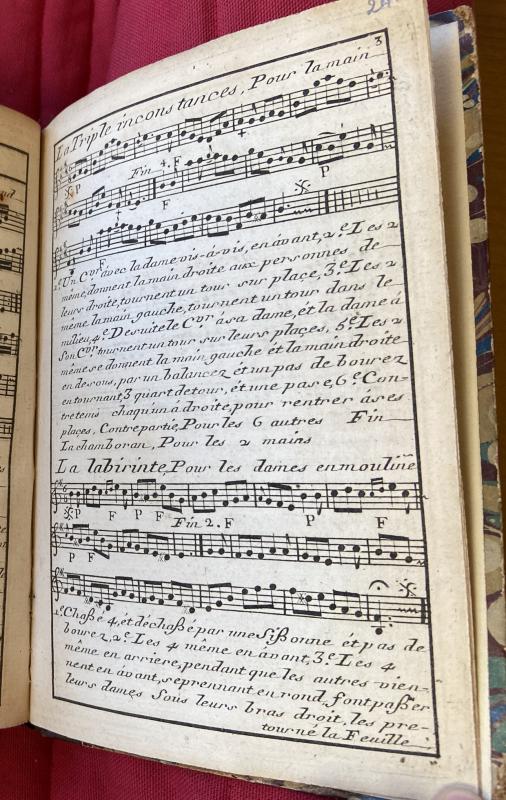 24
3
La Triple inconstances, Pour la main
P
Fin 4. F
P
F
F
1.e Un C.vr avec la dame vis-á-vis, en ávant, 2.e Les 2
même, donnent la main droite aux personnes de
leurs droite, tournent un tour sur plaçe, 3.e Les 2
même, la main gauche, tournent un tour dans le
milieu, 4.e De suite le C.vr á sa dame, ét la dame á
son C.vr tournent un tour sur leurs plaçes, 5.e Les 2
même se donnent la main gauche ét la main droite
en desous, par un balancez ét un pas de bourez
en tournant, 3 quart de tour, ét une pase, 6.e Con-
tretems chaqu'un á droite, pour rentrer á ses
plaçes, Contrepartie, Pour les 6 autres Fin
La chamboran, Pour les 2 mains
La labirinte, Pour les dames en mouline
P F P F P F
Fin 2. F
P F
1.e Chaße 4, ét déchaßé par une Sißonne ét pas de
bourez, 2.e Les 4 même en ávant, 3.e Les 4
même en arriere, pendant que les autres vien-
nent en ávant, se prennant en rond, font paßer
leurs dames sous leurs bras droit, les pre-
tourné la Feuille